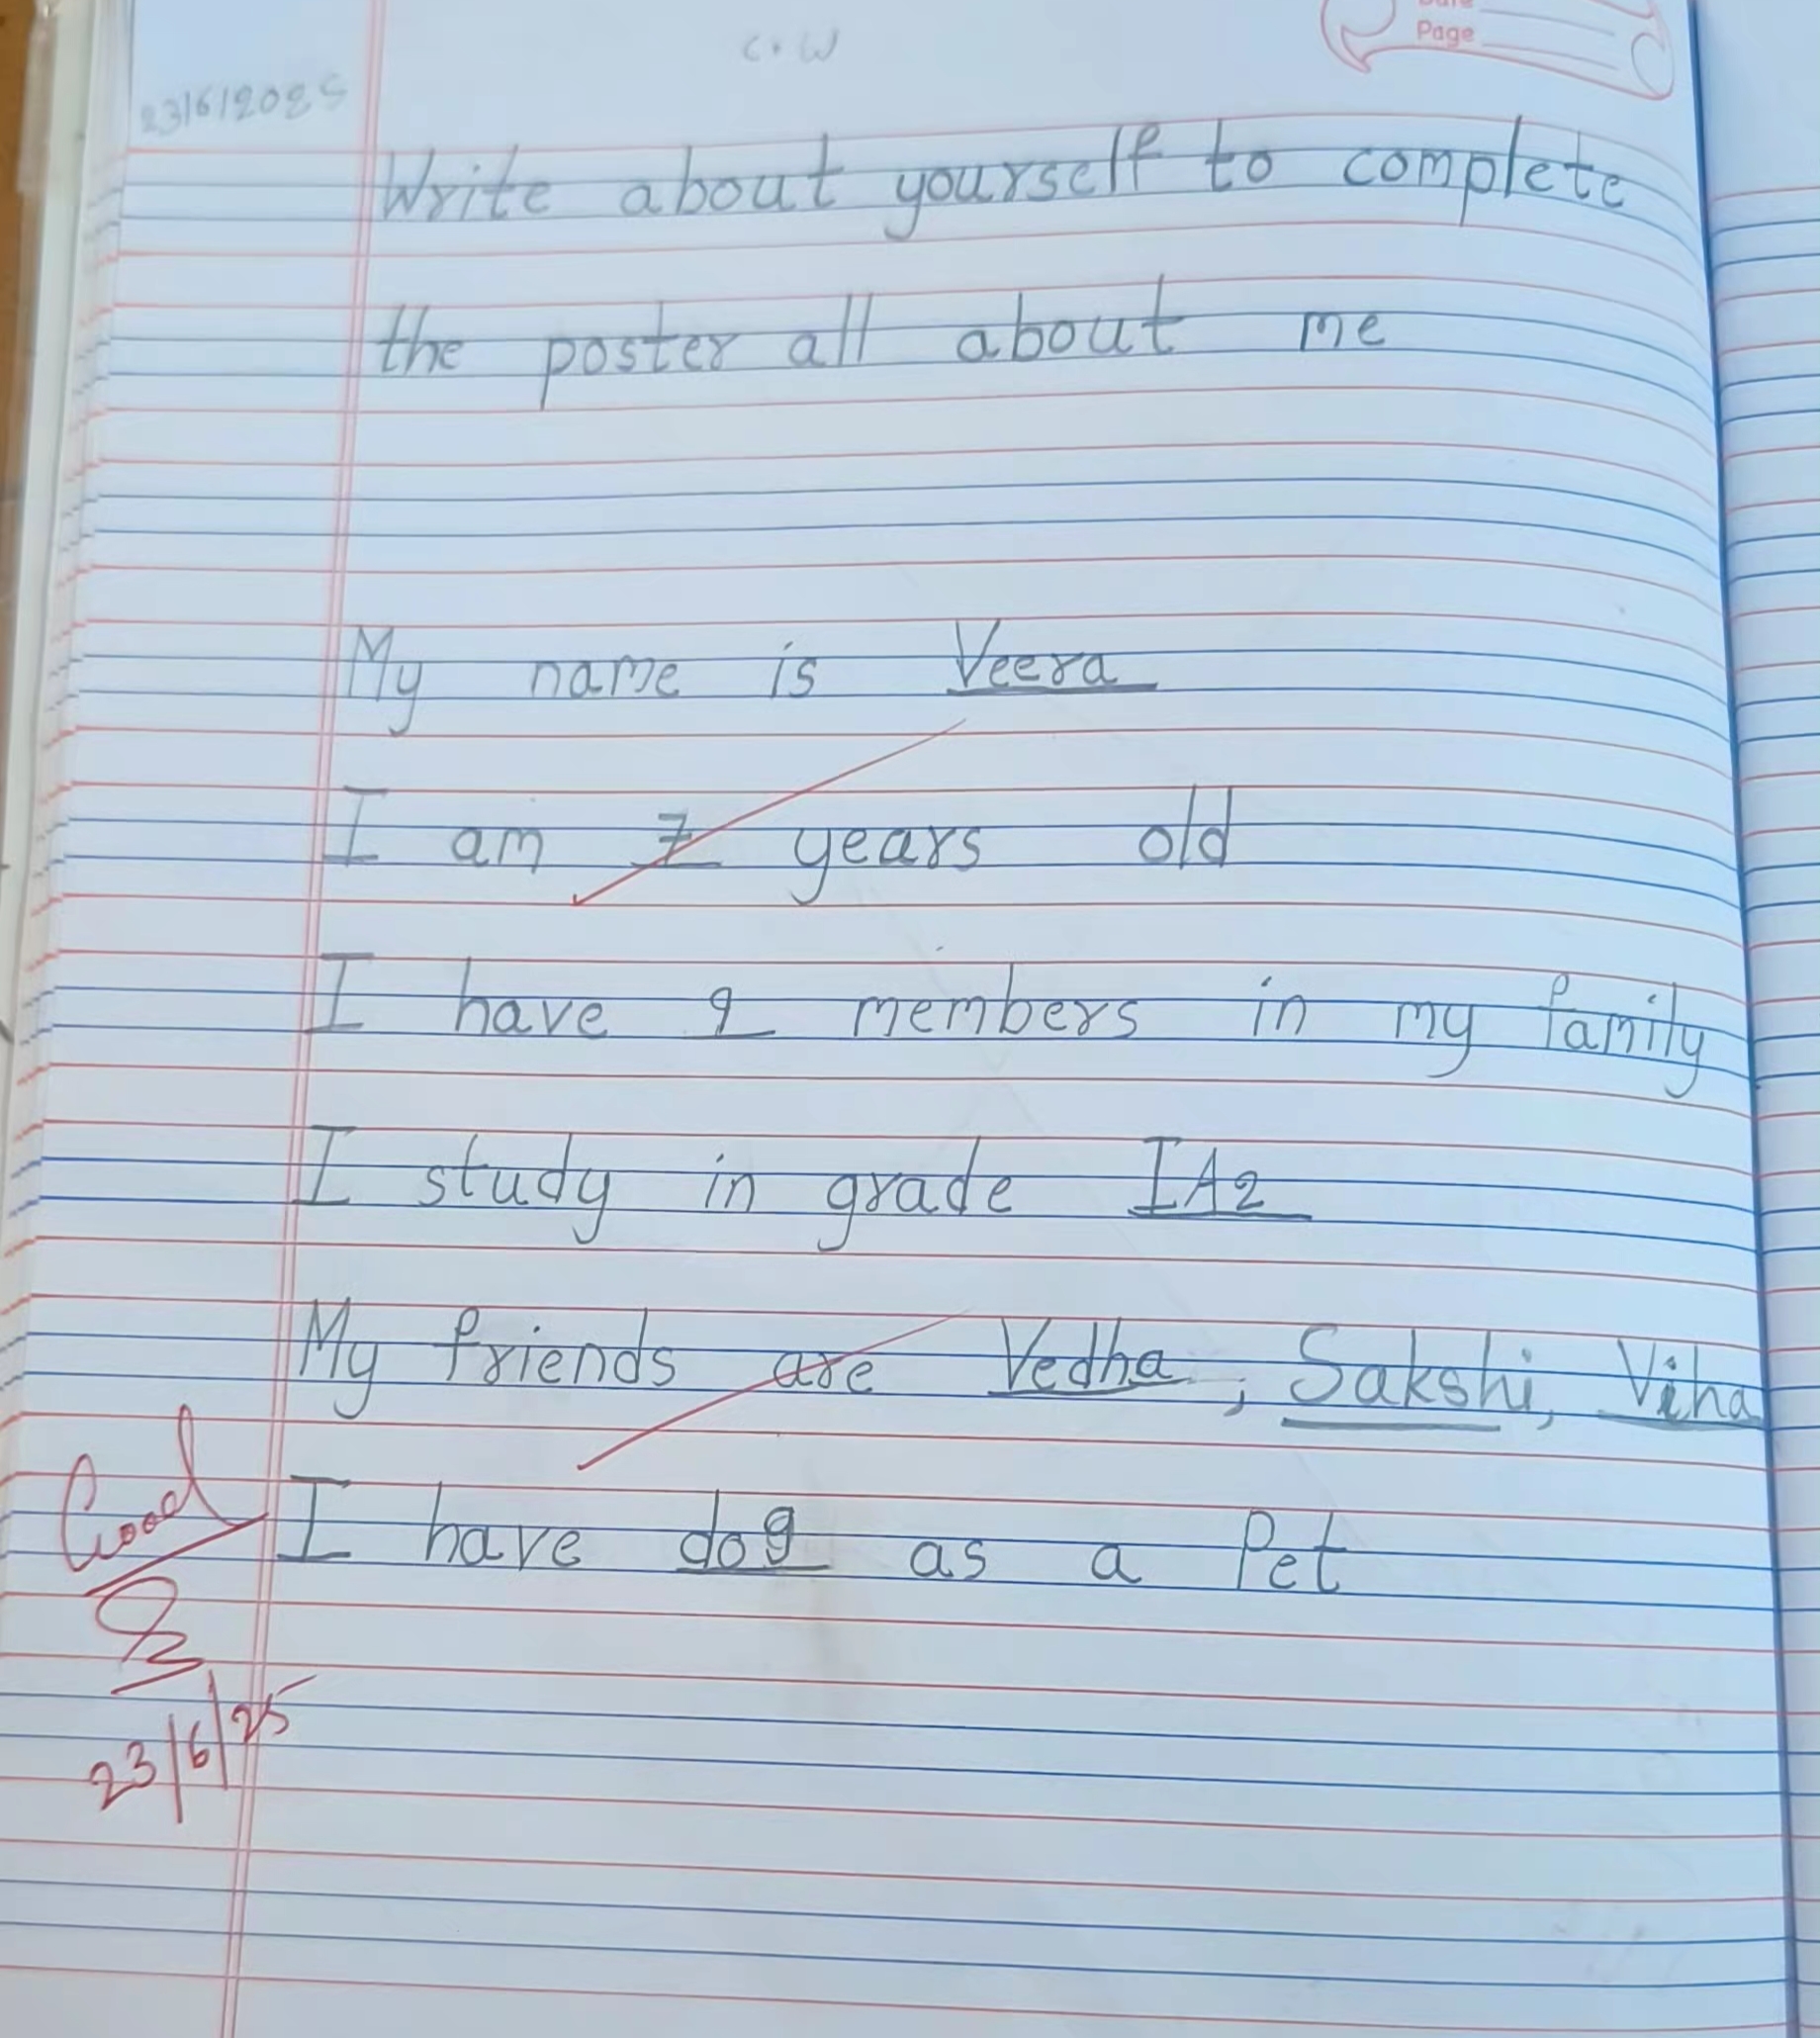 Page
C.W
23/6/2025
Write about yourself to complete
the poster all about me
My name is Veera
I am 7 years old
I have 9 members in my family
I study in grade IA2
My friends are Vedha, Sakshi, Viha
I have dog as a Pet
Good
23/6/25